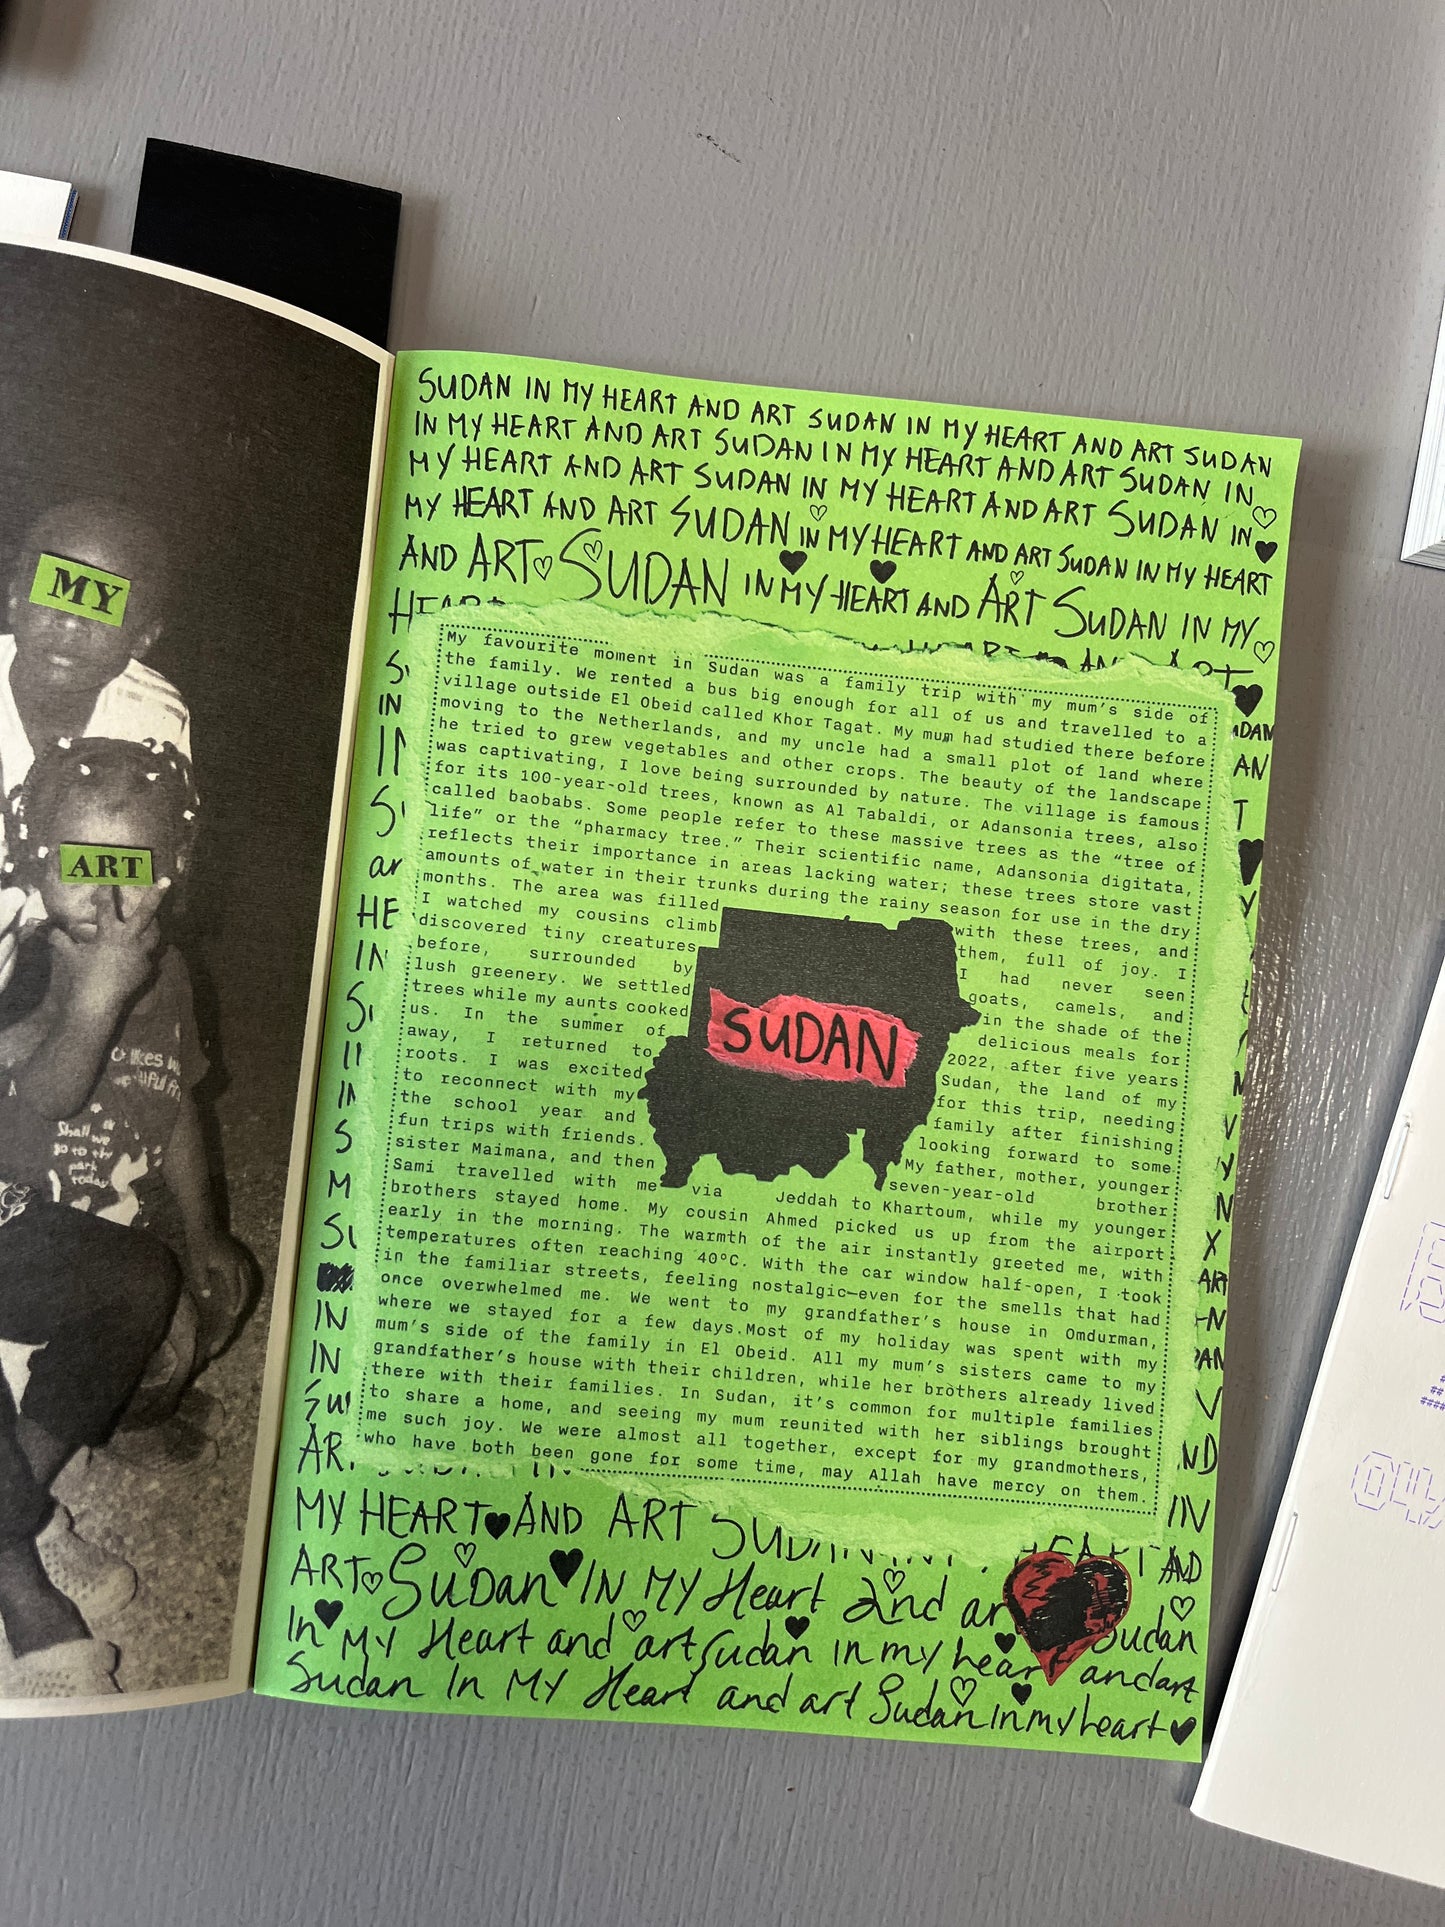 MY
ART
SUDAN IN MY HEART AND ART SUDAN IN MY HEART AND ART SUDAN
IN MY HEART AND ART SUDAN IN MY HEART AND ART SUDAN IN
MY HEART AND ART SUDAN IN MY HEART AND ART SUDAN IN
MY HEART AND ART SUDAN IN MY HEART AND ART SUDAN IN MY HEART
AND ART SUDAN IN MY HEART AND ART SUDAN IN MY
My favourite moment in Sudan was a family trip with my mum's side of
the family. We rented a bus big enough for all of us and travelled to a
village outside El Obeid called Khor Tagat. My mum had studied there before
moving to the Netherlands, and my uncle had a small plot of land where
he tried to grew vegetables and other crops. The beauty of the landscape
was captivating, I love being surrounded by nature. The village is famous
for its 100-year-old trees, known as Al Tabaldi, or Adansonia trees, also
called baobabs. Some people refer to these massive trees as the "tree of
life" or the "pharmacy tree." Their scientific name, Adansonia digitata,
reflects their importance in areas lacking water; these trees store vast
amounts of water in their trunks during the rainy season for use in the dry
months. The area was filled with these trees, and
I watched my cousins climb them, full of joy. I
discovered tiny creatures I had never seen
before, surrounded by goats, camels, and
lush greenery. We settled in the shade of the
trees while my aunts cooked delicious meals for
us. In the summer of 2022, after five years
away, I returned to Sudan, the land of my
roots. I was excited for this trip, needing
to reconnect with my family after finishing
the school year and looking forward to some
fun trips with friends. My father, mother, younger
sister Maimana, and then seven-year-old brother
Sami travelled with me via Jeddah to Khartoum, while my younger
brothers stayed home. My cousin Ahmed picked us up from the airport
early in the morning. The warmth of the air instantly greeted me, with
temperatures often reaching 40°C. With the car window half-open, I took
in the familiar streets, feeling nostalgic—even for the smells that had
once overwhelmed me. We went to my grandfather's house in Omdurman,
where we stayed for a few days.Most of my holiday was spent with my
mum's side of the family in El Obeid. All my mum's sisters came to my
grandfather's house with their children, while her brothers already lived
there with their families. In Sudan, it's common for multiple families
to share a home, and seeing my mum reunited with her siblings brought
me such joy. We were almost all together, except for my grandmothers,
who have both been gone for some time, may Allah have mercy on them.
SUDAN
MY HEART AND ART SUDAN IN MY HEART AND
ART Sudan IN MY Heart and art Sudan
In My Heart and art Sudan in my heart and art
Sudan In My Heart and art Sudan in my heart
Shall we
go to the
park
today